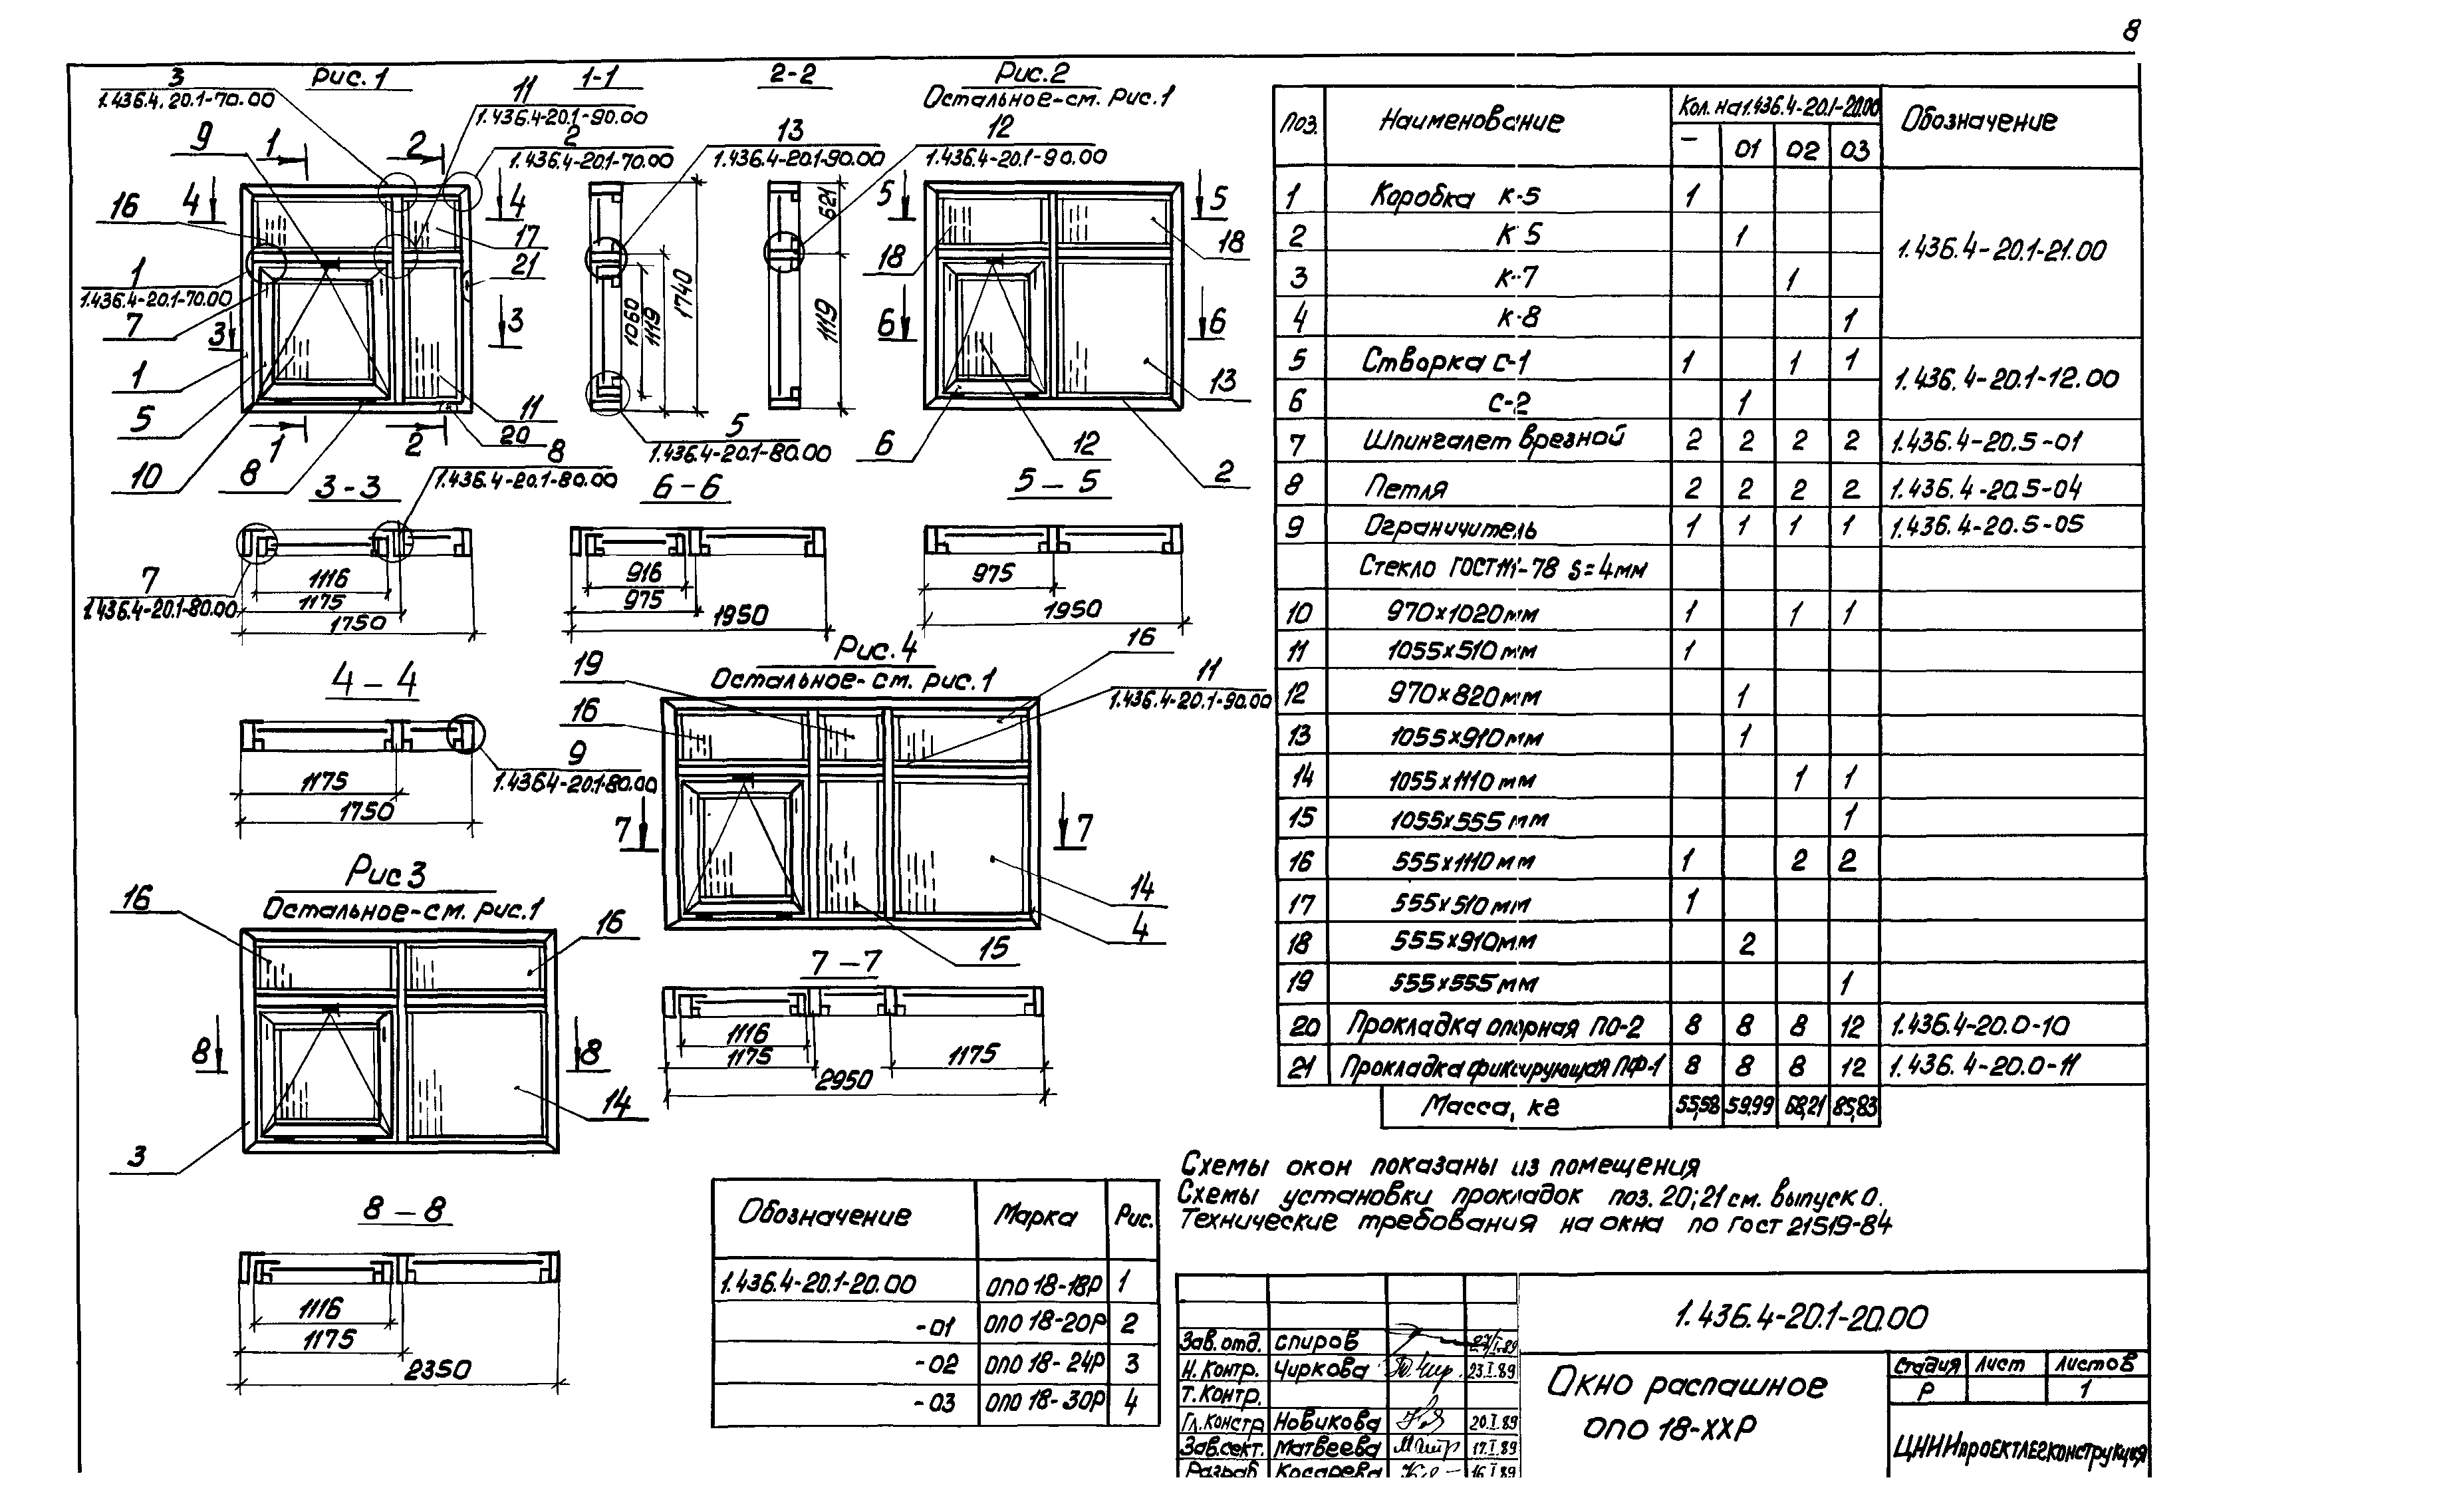 8
Рис. 1
3
1.436.4.20.1-70.00
11
1.436.4-20.1-90.00
2
1.436.4-20.1-70.00
9
1
2
16
4
4
17
21
1
1.436.4-20.1-70.00
7
3
3
1
5
11
20
10
8
1
2
8
1.436.4-20.1-80.00
1-1
13
1.436.4-20.1-90.00
1060
1119
1740
5
1.436.4-20.1-80.00
2-2
12
1.436.4-20.1-90.00
621
1119
Рис. 2
Остальное-см. Рис. 1
5
5
18
18
6
6
13
6
12
2
3-3
7
1.436.4-20.1-80.00
1116
1175
1750
6-6
916
975
1950
5-5
975
1950
4-4
9
1.436.4-20.1-80.00
1175
1750
Рис. 4
Остальное-см. рис. 1
19
16
16
11
1.436.4-20.1-90.00
7
7
14
4
15
7-7
1116
1175
1175
2950
Рис 3
Остальное-см. рис. 1
16
16
8
8
14
3
8-8
1116
1175
2350
Поз. Наименование Кол. на 1.436.4-20.1-20.00 Обозначение
- 01 02 03
1 Коробка К-5 1
2 К 5 1
1.436.4-20.1-21.00
3 К-7 1
4 К-8 1
5 Створка С-1 1 1 1
1.436.4-20.1-12.00
6 С-2 1
7 Шпингалет врезной 2 2 2 2 1.436.4-20.5-01
8 Петля 2 2 2 2 1.436.4-20.5-04
9 Ограничитель 1 1 1 1 1.436.4-20.5-05
Стекло ГОСТ 111-78 s=4мм
10 970х1020мм 1 1 1
11 1055х510мм 1
12 970х820мм 1
13 1055х910мм 1
14 1055х1110мм 1 1
15 1055х555мм 1
16 555х1110мм 1 2 2
17 555х510мм 1
18 555х910мм 2
19 555х555мм 1
20 Прокладка опорная ПО-2 8 8 8 12 1.436.4-20.0-10
21 Прокладка фиксирующая ПФ-1 8 8 8 12 1.436.4-20.0-11
Масса, кг 55,58 59,99 68,21 85,83
Схемы окон показаны из помещения
Схемы установки прокладок поз. 20; 21 см. выпуск 0.
Технические требования на окна по ГОСТ 21519-84
Обозначение Марка Рис.
1.436.4-20.1-20.00 ОПО 18-18Р 1
-01 ОПО 18-20Р 2
-02 ОПО 18-24Р 3
-03 ОПО 18-30Р 4
1.436.4-20.1-20.00
Зав. отд. Спиров
Н. Контр. Чиркова 23.I.89
Т. Контр.
Гл. констр Новикова 20.I.89
Зав. сект. Матвеева 17.I.89
Разраб Косарева 16.I 89
Окно распашное
ОПО 18-ХХР
Стадия Лист Листов
Р 1
ЦНИИпроектлегконструкция